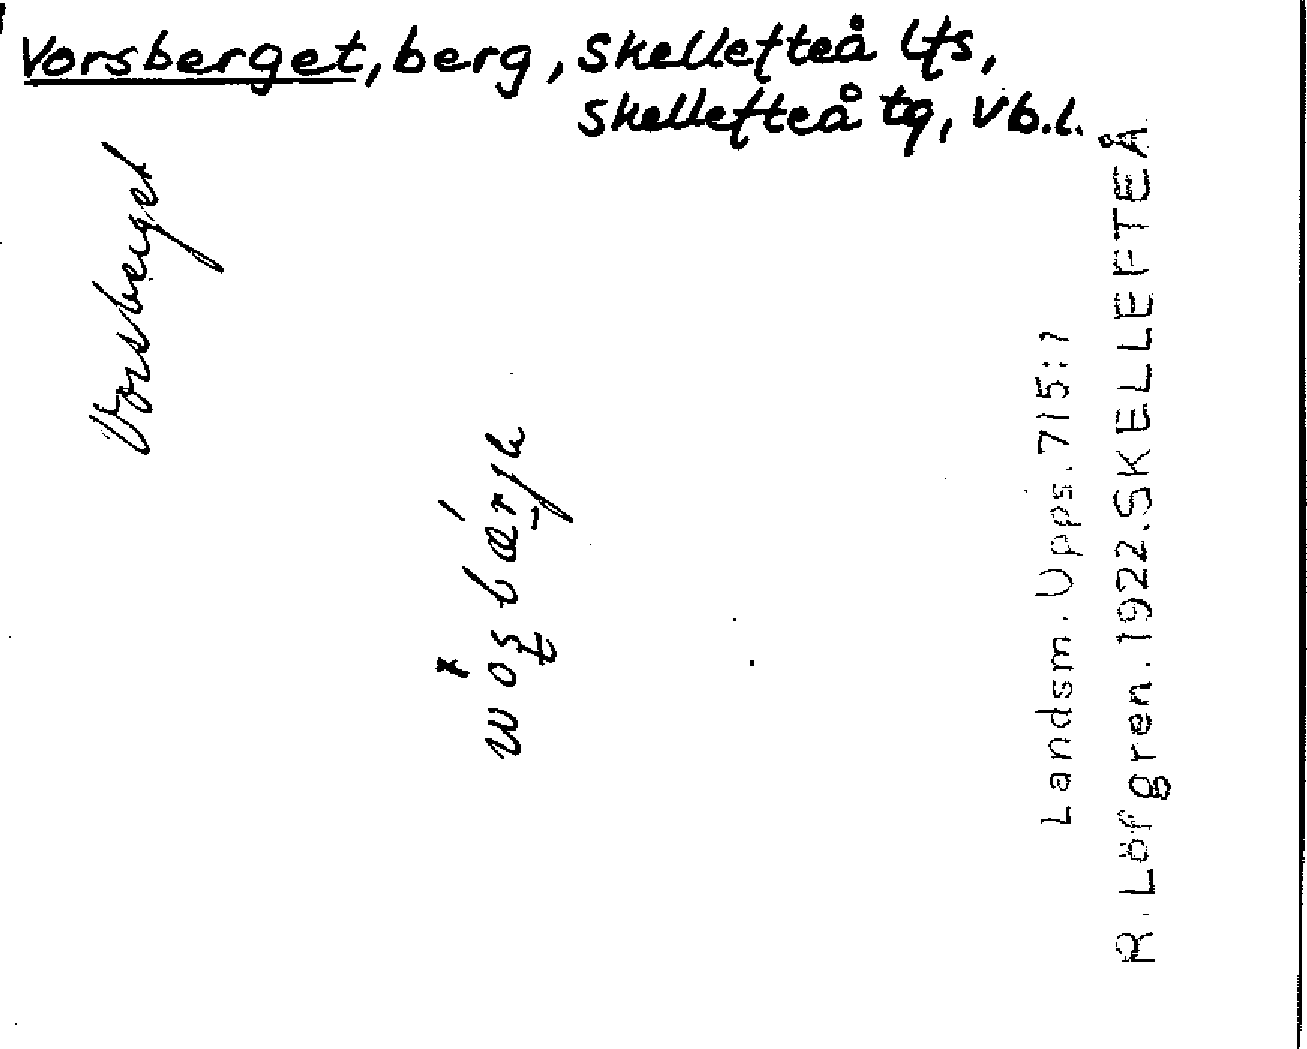 Vorsberget, berg, Skellefteå lfs,
Skellefteå tg, Vb.l.
Vorsberget
Landsm. Upps. 715:1
R. Löfgren. 1922. SKELLEFTEÅ